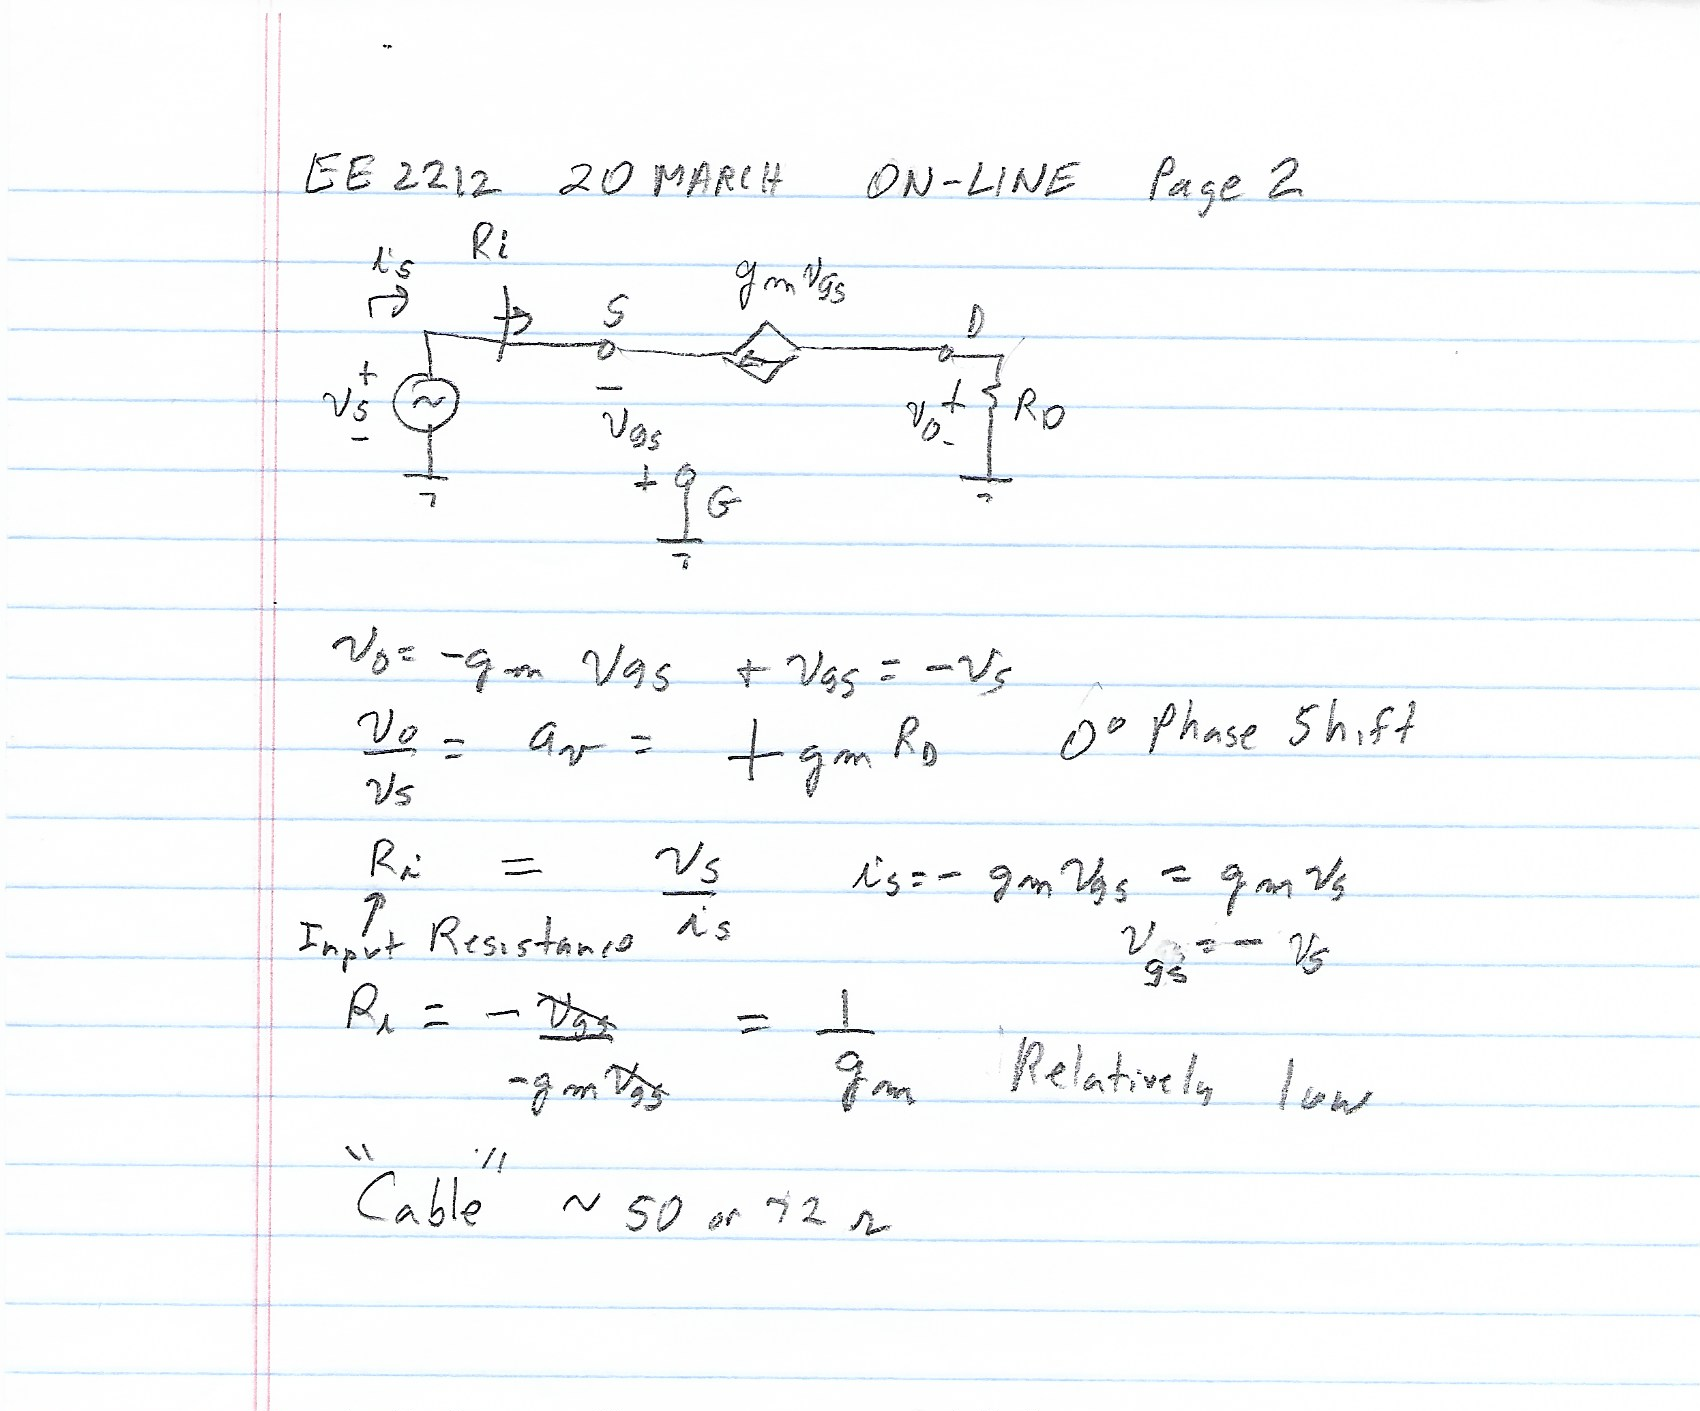 EE 2212 20 MARCH ON-LINE Page 2
Ri
is
gm vgs
S
D
+
vs
-
-
vgs
+
G
vo
+
-
RD
vo = -gm vgs + vgs = -vs
vo/vs = av = + gm RD 0° Phase Shift
Ri = vs/is is = - gm vgs = gm vs
↑
Input Resistance vgs = - vs
Ri = - vgs/-gm vgs = 1/gm Relatively low
"Cable" ~ 50 or 72 Ω